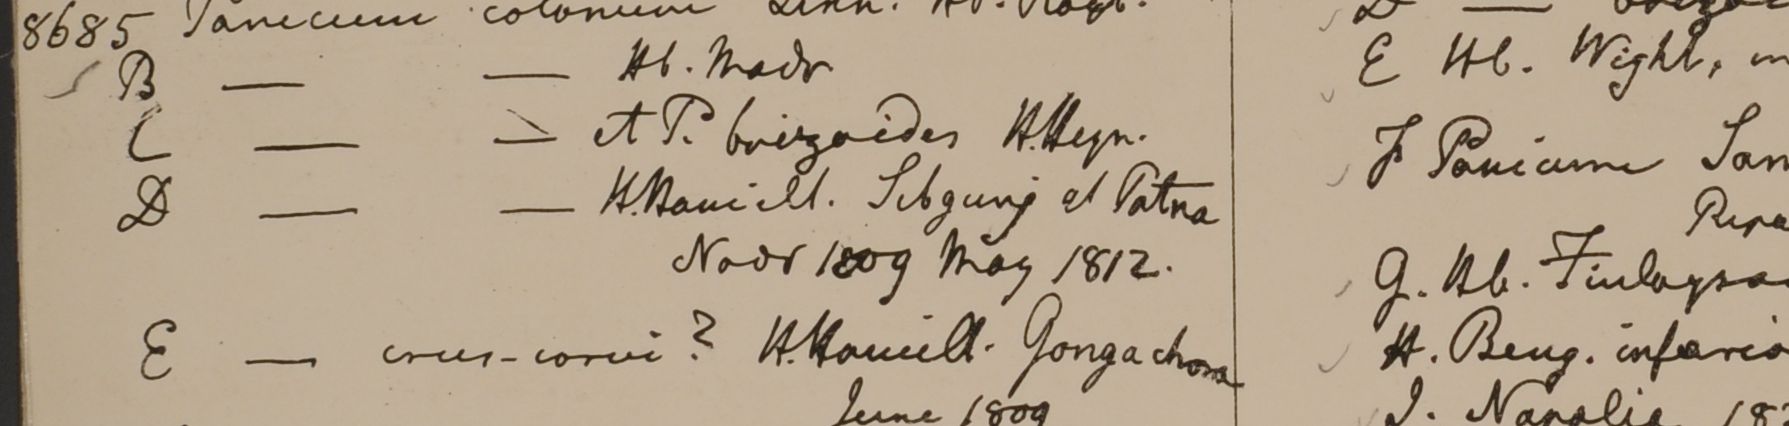 8685 Panicum colonum Linn. Hb. Roxb.
B — — Hb. Madr
C — — et P. brizoides H. Heyn.
D — — H. Hamilt. Sibgunj et Patna
Novr 1809 May 1812.
E — crus-corvi? H. Hamilt. Gongachora
June 1809
D —
E Hb. Wight,
F Panicum
G. Hb. Finlayso
H. Beng. inferio
I. Napalia 18